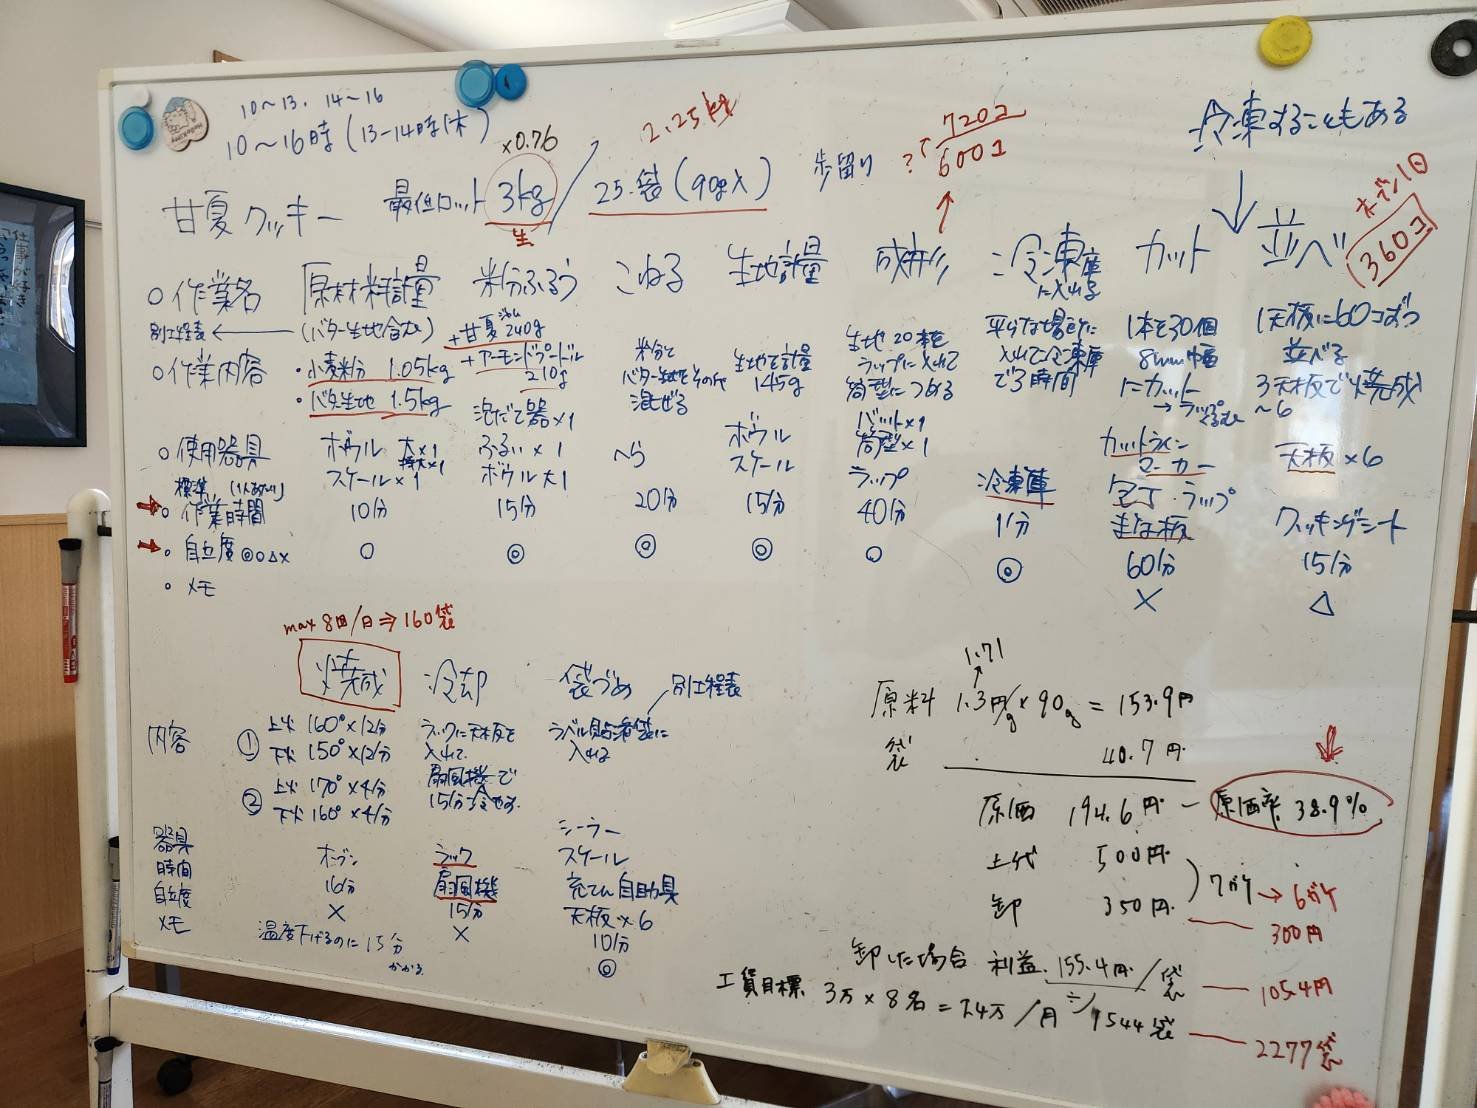 10～13. 14～16
10～16時(13-14時休)
×0.76
2.25kg
720コ
600コ
?
冷凍することもある
甘夏クッキー 最低ロット 3kg / 25袋(90g入) 歩留り
生
オーブン1回
360コ
○作業名 原材料計量 粉ふるう こねる 生地計量 成形 冷凍庫に入れる カット 並べ
別工程表 ← (バター生地含む)
○作業内容
・小麦粉 1.05kg
・バター生地 1.5kg
+甘夏ジャム 240g
+アーモンドプードル 210g
泡だて器×1
粉分と
バター生地をその他
混ぜる
生地を計量
145g
生地20本を
ラップに入れて
筒型につめる
平らな場所に
入れて冷凍庫
で3時間
1本を30個
8mm幅
にカット
→ラップくるむ
1天板に60コずつ
並べる
3天板で焼成
～6
○使用器具
ボウル 大×1
特大×1
スケール×1
ふるい×1
ボウル大1
へら
ボウル
スケール
バット×1
筒型×1
ラップ
冷凍庫
カットライン
マーカー
包丁・ラップ
まな板
天板×6
クッキングシート
標準(1人あたり)
○作業時間 10分 15分 20分 15分 40分 1分 60分 15分
・自立度◎○△× ○ ◎ ◎ ◎ ○ ◎ × △
・メモ
max 8回/日⇒160袋
焼成 冷却 袋づめ 別工程表
内容
① 上火 160°×12分
下火 150°×12分
② 上火 170°×4分
下火 160°×4分
ラックに天板を
入れて
扇風機で
15分冷やす
ラベル貼済袋に
入れる
器具
時間
自立度
メモ
オーブン
16分
×
温度下げるのに15分
かかる
ラック
扇風機
15分
×
シーラー
スケール
充てん自助具
天板×6
10分
◎
1.71
原料 1.3円/g×90g=153.9円
袋 40.7円
原価 194.6円 ― 原価率 38.9%
上代 500円
卸 350円
7ガケ→6ガケ
300円
卸した場合 利益 155.4円/袋 ― 105.4円
工賃目標 3万×8名=24万/月÷ 1544袋 ― 2277袋